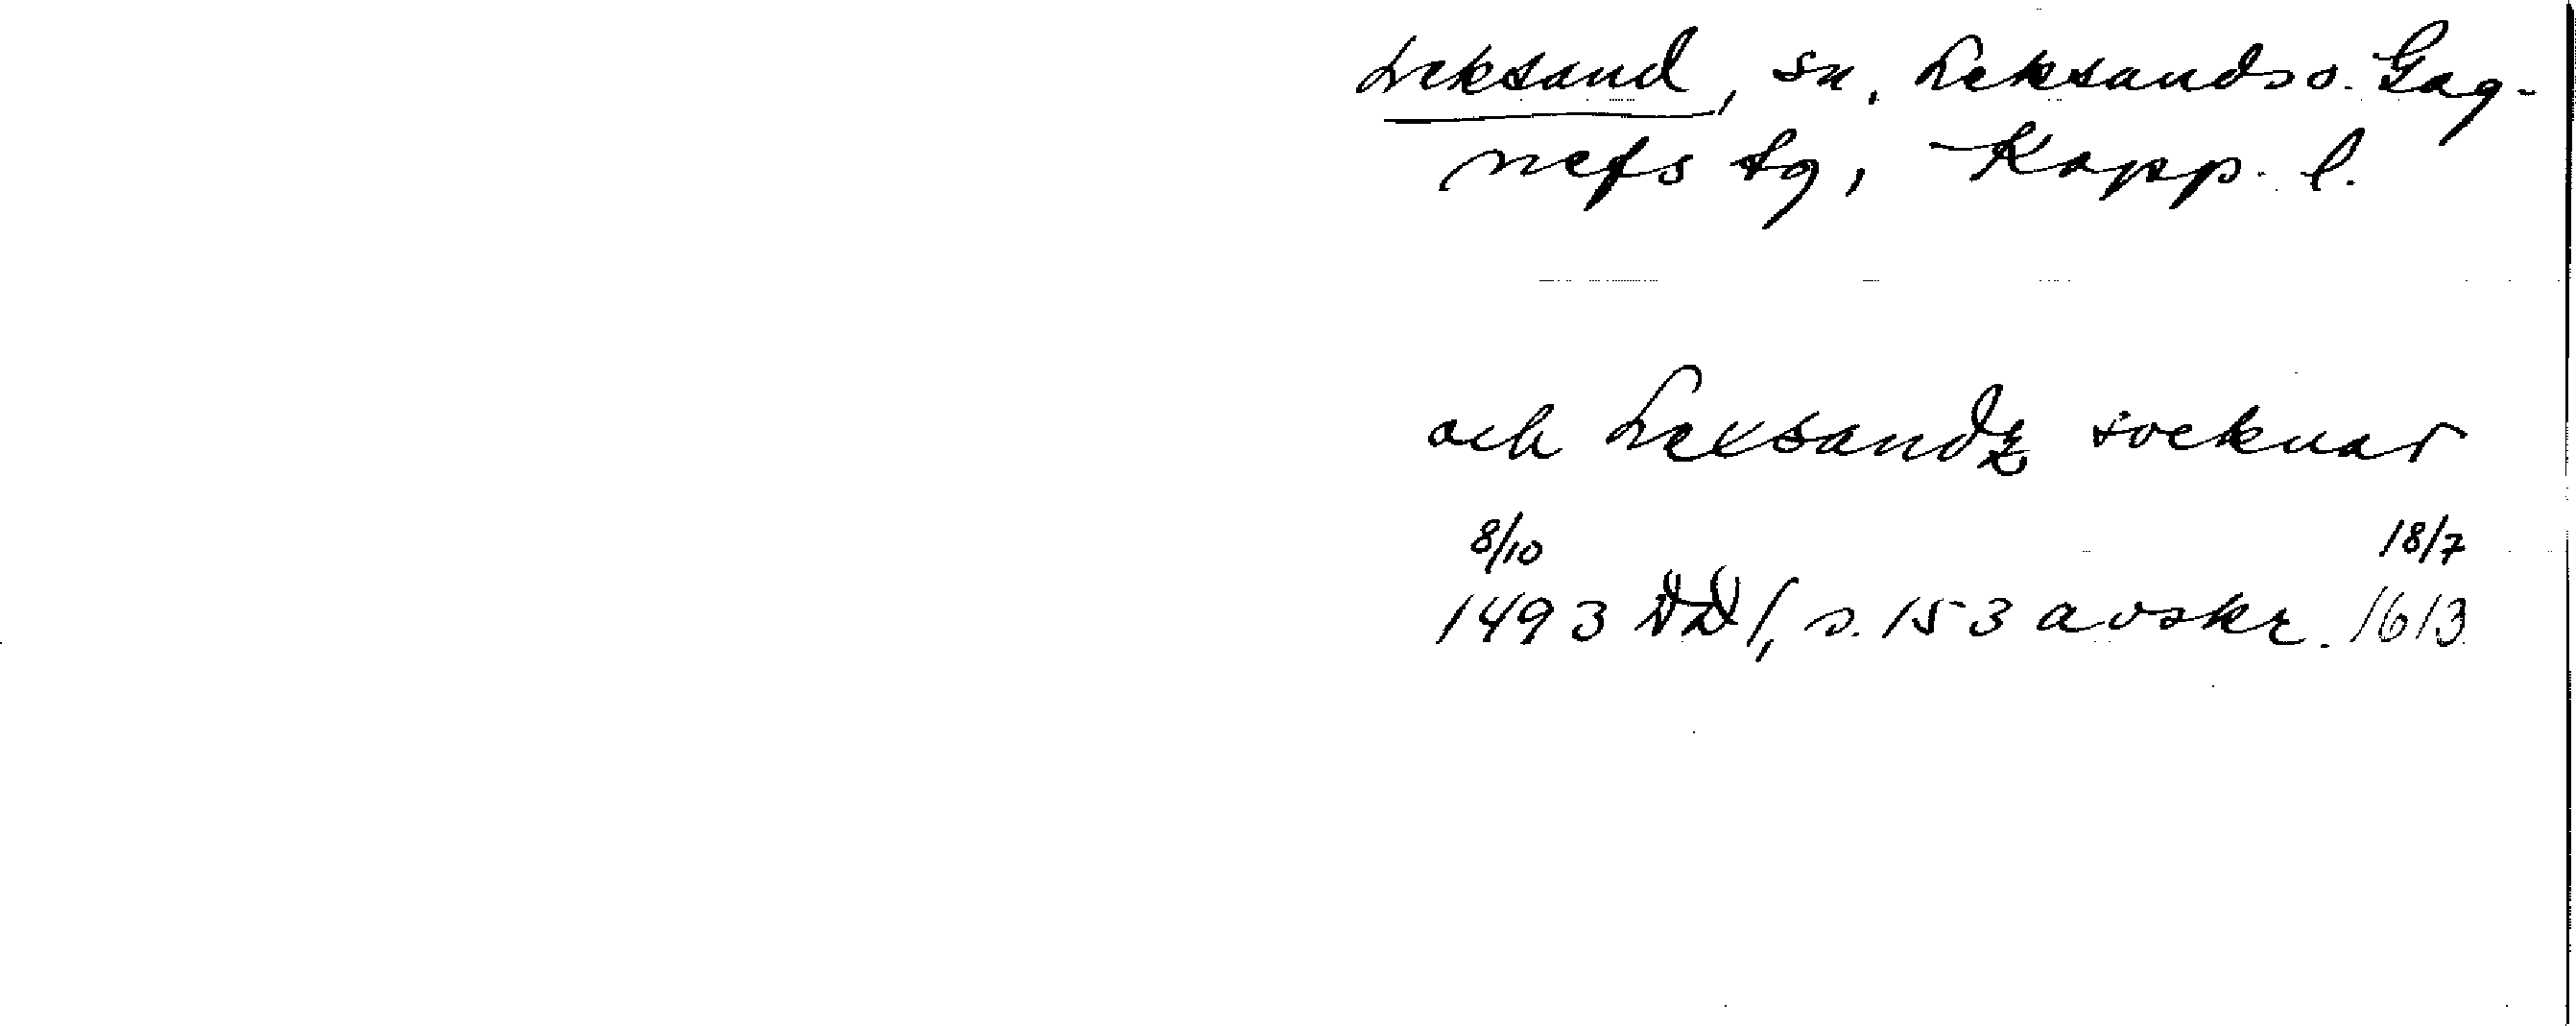 Leksand, sn, Leksands o. Gag-
nefs tg, Kopp. l.
och Lexsandz socknar
8/10 18/7
1493 DD 1, s. 153 avskr. 1613